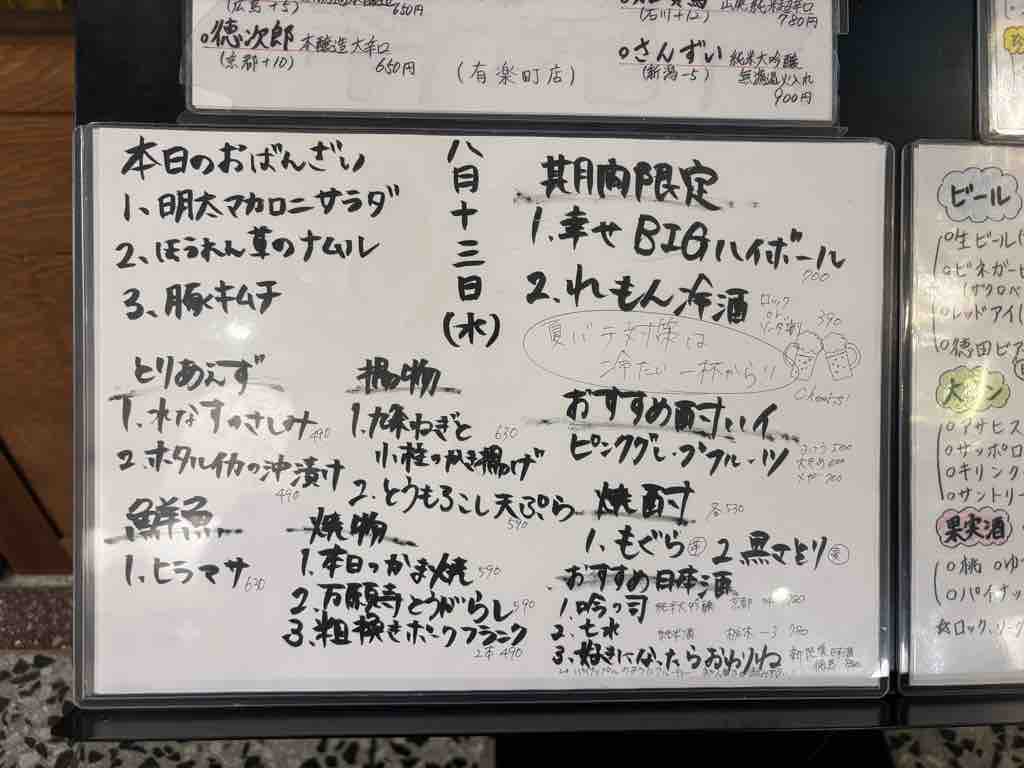 (広島+5) 650円
徳次郎 本醸造大辛口
(京都+10) 650円
(有楽町店)
(石川+12) 山廃純米超辛口
780円
さんずい 純米大吟醸
(新潟-5) 無濾過火入れ
900円
本日のおばんざい
1、明太マカロニサラダ
2、ほうれん草のナムル
3、豚キムチ
八月十三日(水)
期間限定
1.幸せBIGハイボール
700
2.れもん冷酒 ロック or ソーダ割 390
夏バテ対策は
冷たい一杯から!!
とりあえず
1.水なすのさしみ 490
2.ホタルイカの沖漬け
490
鮮魚
1.ヒラマサ 630
揚物
1.九条ねぎと 630
小柱のかき揚げ
2.とうもろこし天ぷら
590
焼物
1.本日のかま焼 590
2.万願寺とうがらし 590
3.粗挽きポークフランク
2本490
おすすめ酎ハイ
ピンクグレープフルーツ
ふつう500
大きめ600
メガ700
焼酎 各530
1.もぐら 芋 2.黒さとり 麦
おすすめ日本酒
1.吟の司 純米大吟醸 京都
2.七水 純米酒 栃木 -3 780
3.好きになったらおわりね
ビール
生ビール
ビネガービ
(ザクロベ
レッドアイ
徳田ビア
アサヒス
サッポロ
キリンク
サントリー
果実酒
桃 ゆ
パイナッ
☆ロック、ソーダ